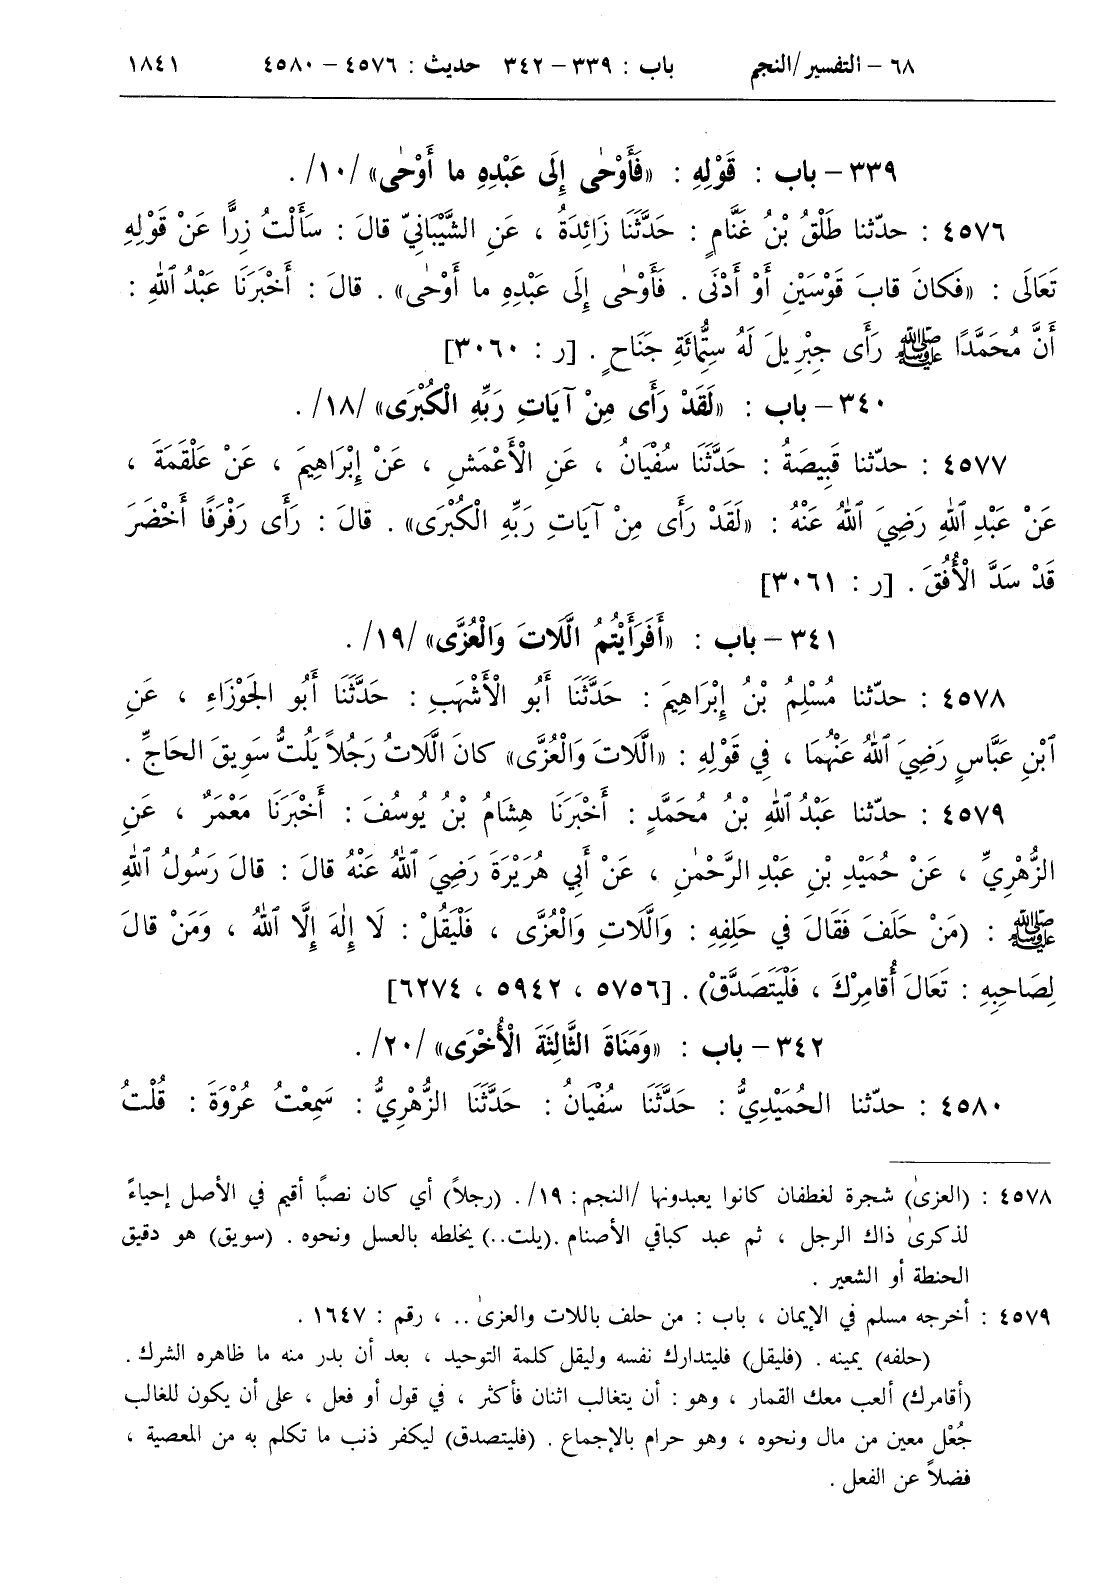 ٦٨ – التفسير/النجم باب : ٣٣٩ – ٣٤٢ حديث : ٤٥٧٦ – ٤٥٨٠ ١٨٤١
٣٣٩ – باب : قَوْلِهِ : «فَأَوْحٰى إِلَى عَبْدِهِ ما أَوْحٰى» /١٠/ .
٤٥٧٦ : حدّثنا طَلْقُ بْنُ غَنَّامٍ : حَدَّثَنَا زَائِدَةُ ، عَنِ الشَّيْبَانِيِّ قالَ : سَأَلْتُ زِرًّا عَنْ قَوْلِهِ
تَعَالَى : «فَكانَ قابَ قَوْسَيْنِ أَوْ أَدْنَى . فَأَوْحٰى إِلَى عَبْدِهِ ما أَوْحٰى» . قالَ : أَخْبَرَنَا عَبْدُ ٱللهِ :
أَنَّ مُحَمَّدًا ﷺ رَأَى جِبْرِيلَ لَهُ سِتُّمِائَةِ جَنَاحٍ . [ر : ٣٠٦٠]
٣٤٠ – باب : «لَقَدْ رَأَى مِنْ آيَاتِ رَبِّهِ الْكُبْرَى» /١٨/ .
٤٥٧٧ : حدّثنا قَبِيصَةُ : حَدَّثَنَا سُفْيَانُ ، عَنِ الْأَعْمَشِ ، عَنْ إِبْرَاهِيمَ ، عَنْ عَلْقَمَةَ ،
عَنْ عَبْدِ ٱللهِ رَضِيَ ٱللهُ عَنْهُ : «لَقَدْ رَأَى مِنْ آيَاتِ رَبِّهِ الْكُبْرَى» . قالَ : رَأَى رَفْرَفًا أَخْضَرَ
قَدْ سَدَّ الْأُفُقَ . [ر : ٣٠٦١]
٣٤١ – باب : «أَفَرَأَيْتُمُ الَّلاتَ وَالْعُزَّى» /١٩/ .
٤٥٧٨ : حدّثنا مُسْلِمُ بْنُ إِبْرَاهِيمَ : حَدَّثَنَا أَبُو الْأَشْهَبِ : حَدَّثَنَا أَبُو الجَوْزَاءِ ، عَنِ
ٱبْنِ عَبَّاسٍ رَضِيَ ٱللهُ عَنْهُمَا ، فِي قَوْلِهِ : «الَّلاتَ وَالْعُزَّى» كانَ الَّلاتُ رَجُلاً يَلُتُّ سَوِيقَ الحَاجِّ .
٤٥٧٩ : حدّثنا عَبْدُ ٱللهِ بْنُ مُحَمَّدٍ : أَخْبَرَنَا هِشَامُ بْنُ يُوسُفَ : أَخْبَرَنَا مَعْمَرٌ ، عَنِ
الزُّهْرِيِّ ، عَنْ حُمَيْدِ بْنِ عَبْدِ الرَّحْمٰنِ ، عَنْ أَبِي هُرَيْرَةَ رَضِيَ ٱللهُ عَنْهُ قالَ : قالَ رَسُولُ ٱللهِ
ﷺ : (مَنْ حَلَفَ فَقَالَ فِي حَلِفِهِ : وَالَّلاتِ وَالْعُزَّى ، فَلْيَقُلْ : لَا إِلٰهَ إِلَّا ٱللهُ ، وَمَنْ قالَ
لِصَاحِبِهِ : تَعَالَ أُقامِرْكَ ، فَلْيَتَصَدَّقْ) . [٥٧٥٦ ، ٥٩٤٢ ، ٦٢٧٤]
٣٤٢ – باب : «وَمَنَاةَ الثَّالِثَةَ الْأُخْرَى» /٢٠/ .
٤٥٨٠ : حدّثنا الحُمَيْدِيُّ : حَدَّثَنَا سُفْيَانُ : حَدَّثَنَا الزُّهْرِيُّ : سَمِعْتُ عُرْوَةَ : قُلْتُ
٤٥٧٨ : (العزىٰ) شجرة لغطفان كانوا يعبدونها /النجم : ١٩/ . (رجلاً) أي كان نصبًا أقيم في الأصل إحياءً
لذكرىٰ ذاك الرجل ، ثم عبد كباقي الأصنام .(يلت..) يخلطه بالعسل ونحوه . (سويق) هو دقيق
الحنطة أو الشعير .
٤٥٧٩ : أخرجه مسلم في الإيمان ، باب : من حلف باللات والعزىٰ .. ، رقم : ١٦٤٧ .
(حلفه) يمينه . (فليقل) فليتدارك نفسه وليقل كلمة التوحيد ، بعد أن بدر منه ما ظاهره الشرك .
(أقامرك) ألعب معك القمار ، وهو : أن يتغالب اثنان فأكثر ، في قول أو فعل ، على أن يكون للغالب
جُعْل معين من مال ونحوه ، وهو حرام بالإجماع . (فليتصدق) ليكفر ذنب ما تكلم به من المعصية ،
فضلاً عن الفعل .